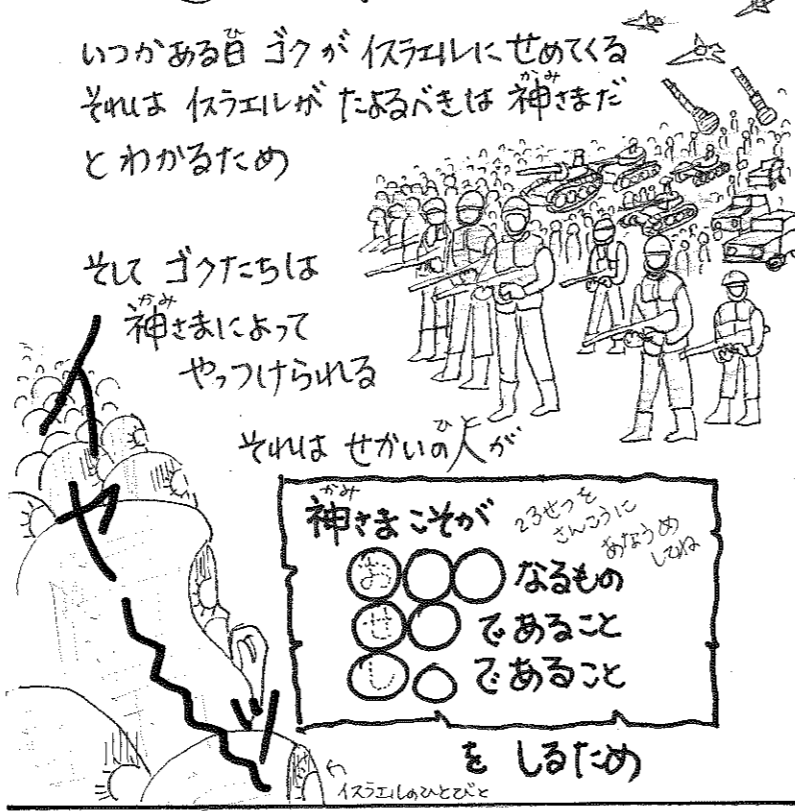 いつかある日 ゴグが イスラエルに せめてくる
それは イスラエルが たよるべきは 神さまだ
とわかるため
そして ゴグたちは
神さまによって
やっつけられる
それは せかいの人が
神さまこそが
23せつを
さんこうに
あなうめ
してね
お〇〇なるもの
せ〇であること
し〇であること
を しるため
イヤ〜ッ
イスラエルのひとびと